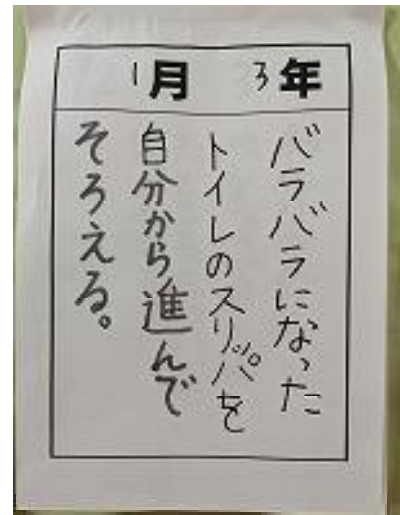 3年 1月
バラバラになった
トイレのスリパを
自分から進んで
そろえる。